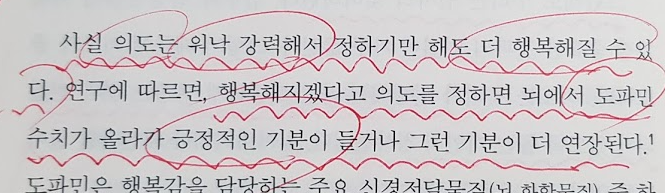 사실 의도는 워낙 강력해서 정하기만 해도 더 행복해질 수 있
다. 연구에 따르면, 행복해지겠다고 의도를 정하면 뇌에서 도파민
수치가 올라가 긍정적인 기분이 들거나 그런 기분이 더 연장된다.¹
도파민은 행복감을 담당하는 주요 신경전달물질(뇌 화학물질) 중